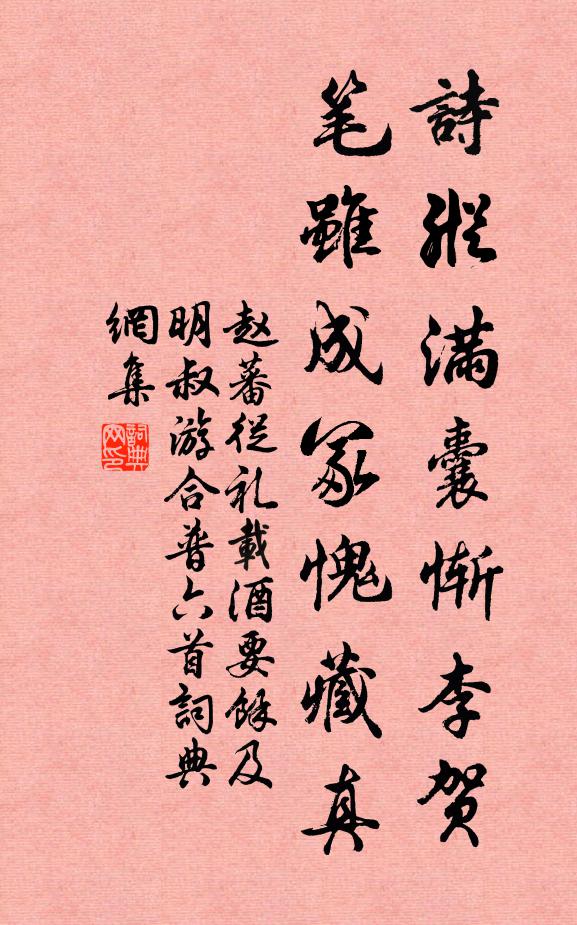 詩縱满囊慚李贺
笔雖成冢愧藏真
赵蕃從礼載酒要餘及
明叔游合普六首詞典
網集
詞典网印